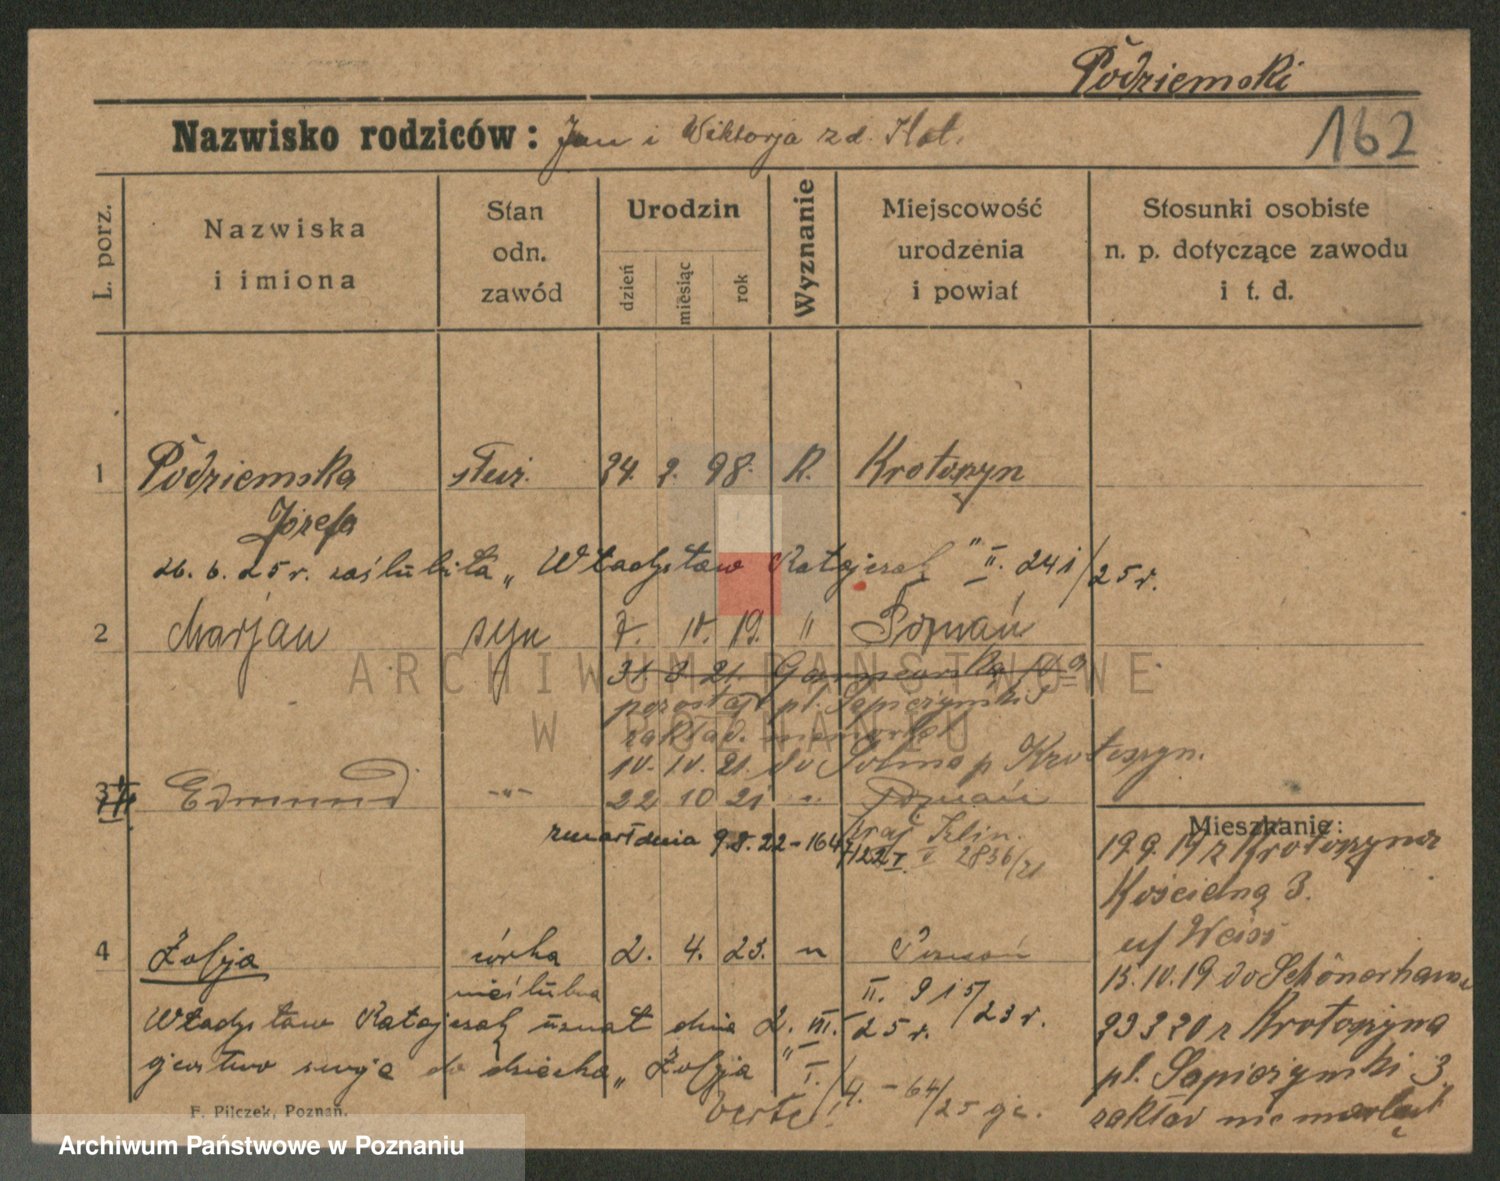 Podziemski
Nazwisko rodziców: Jan i Wiktorja z d.
162
L. porz.
Nazwiska i imiona
Stan odn. zawód
Urodzin
dzień
miesiąc
rok
Wyznanie
Miejscowość urodzenia i powiat
Stosunki osobiste n. p. dotyczące zawodu i t. d.
1 Podziemska służ. 24. 2. 98. R. Krotoszyn
Józefa
26. 6. 25 r. zaślubiła „Władysław Ratajczak" II. 241/25 r.
2 Marjan syn 7. 10. 19. " Poznań
31 8 21.
pozostaje pl. Sapieżyński 3
zakład niemowląt
10. 10. 21. do p Krotoszyn.
3 Edmund -"- 22 10 21 " Poznań
zmarł dnia 9.8.22 - 164
V 2836/21
Mieszkanie:
19 9. 19 z Krotoszyna
Kościelną 3.
u/ Weiss
15. 10. 19 do
z Krotoszyna
pl. Sapieżyński 3
zakład niemowląt
4 Zofja córka 2. 4. 23. " Poznań
nieślubna
II. 915/23 r.
Władysław Ratajczak uznał dnia 2. III. 25 r.
ojcostwo swoje do dziecka „Zofja" I.
/4. - 64/25
verte!
F. Pilczek, Poznań.
ARCHIWUM PAŃSTWOWE
W POZNANIU
Archiwum Państwowe w Poznaniu